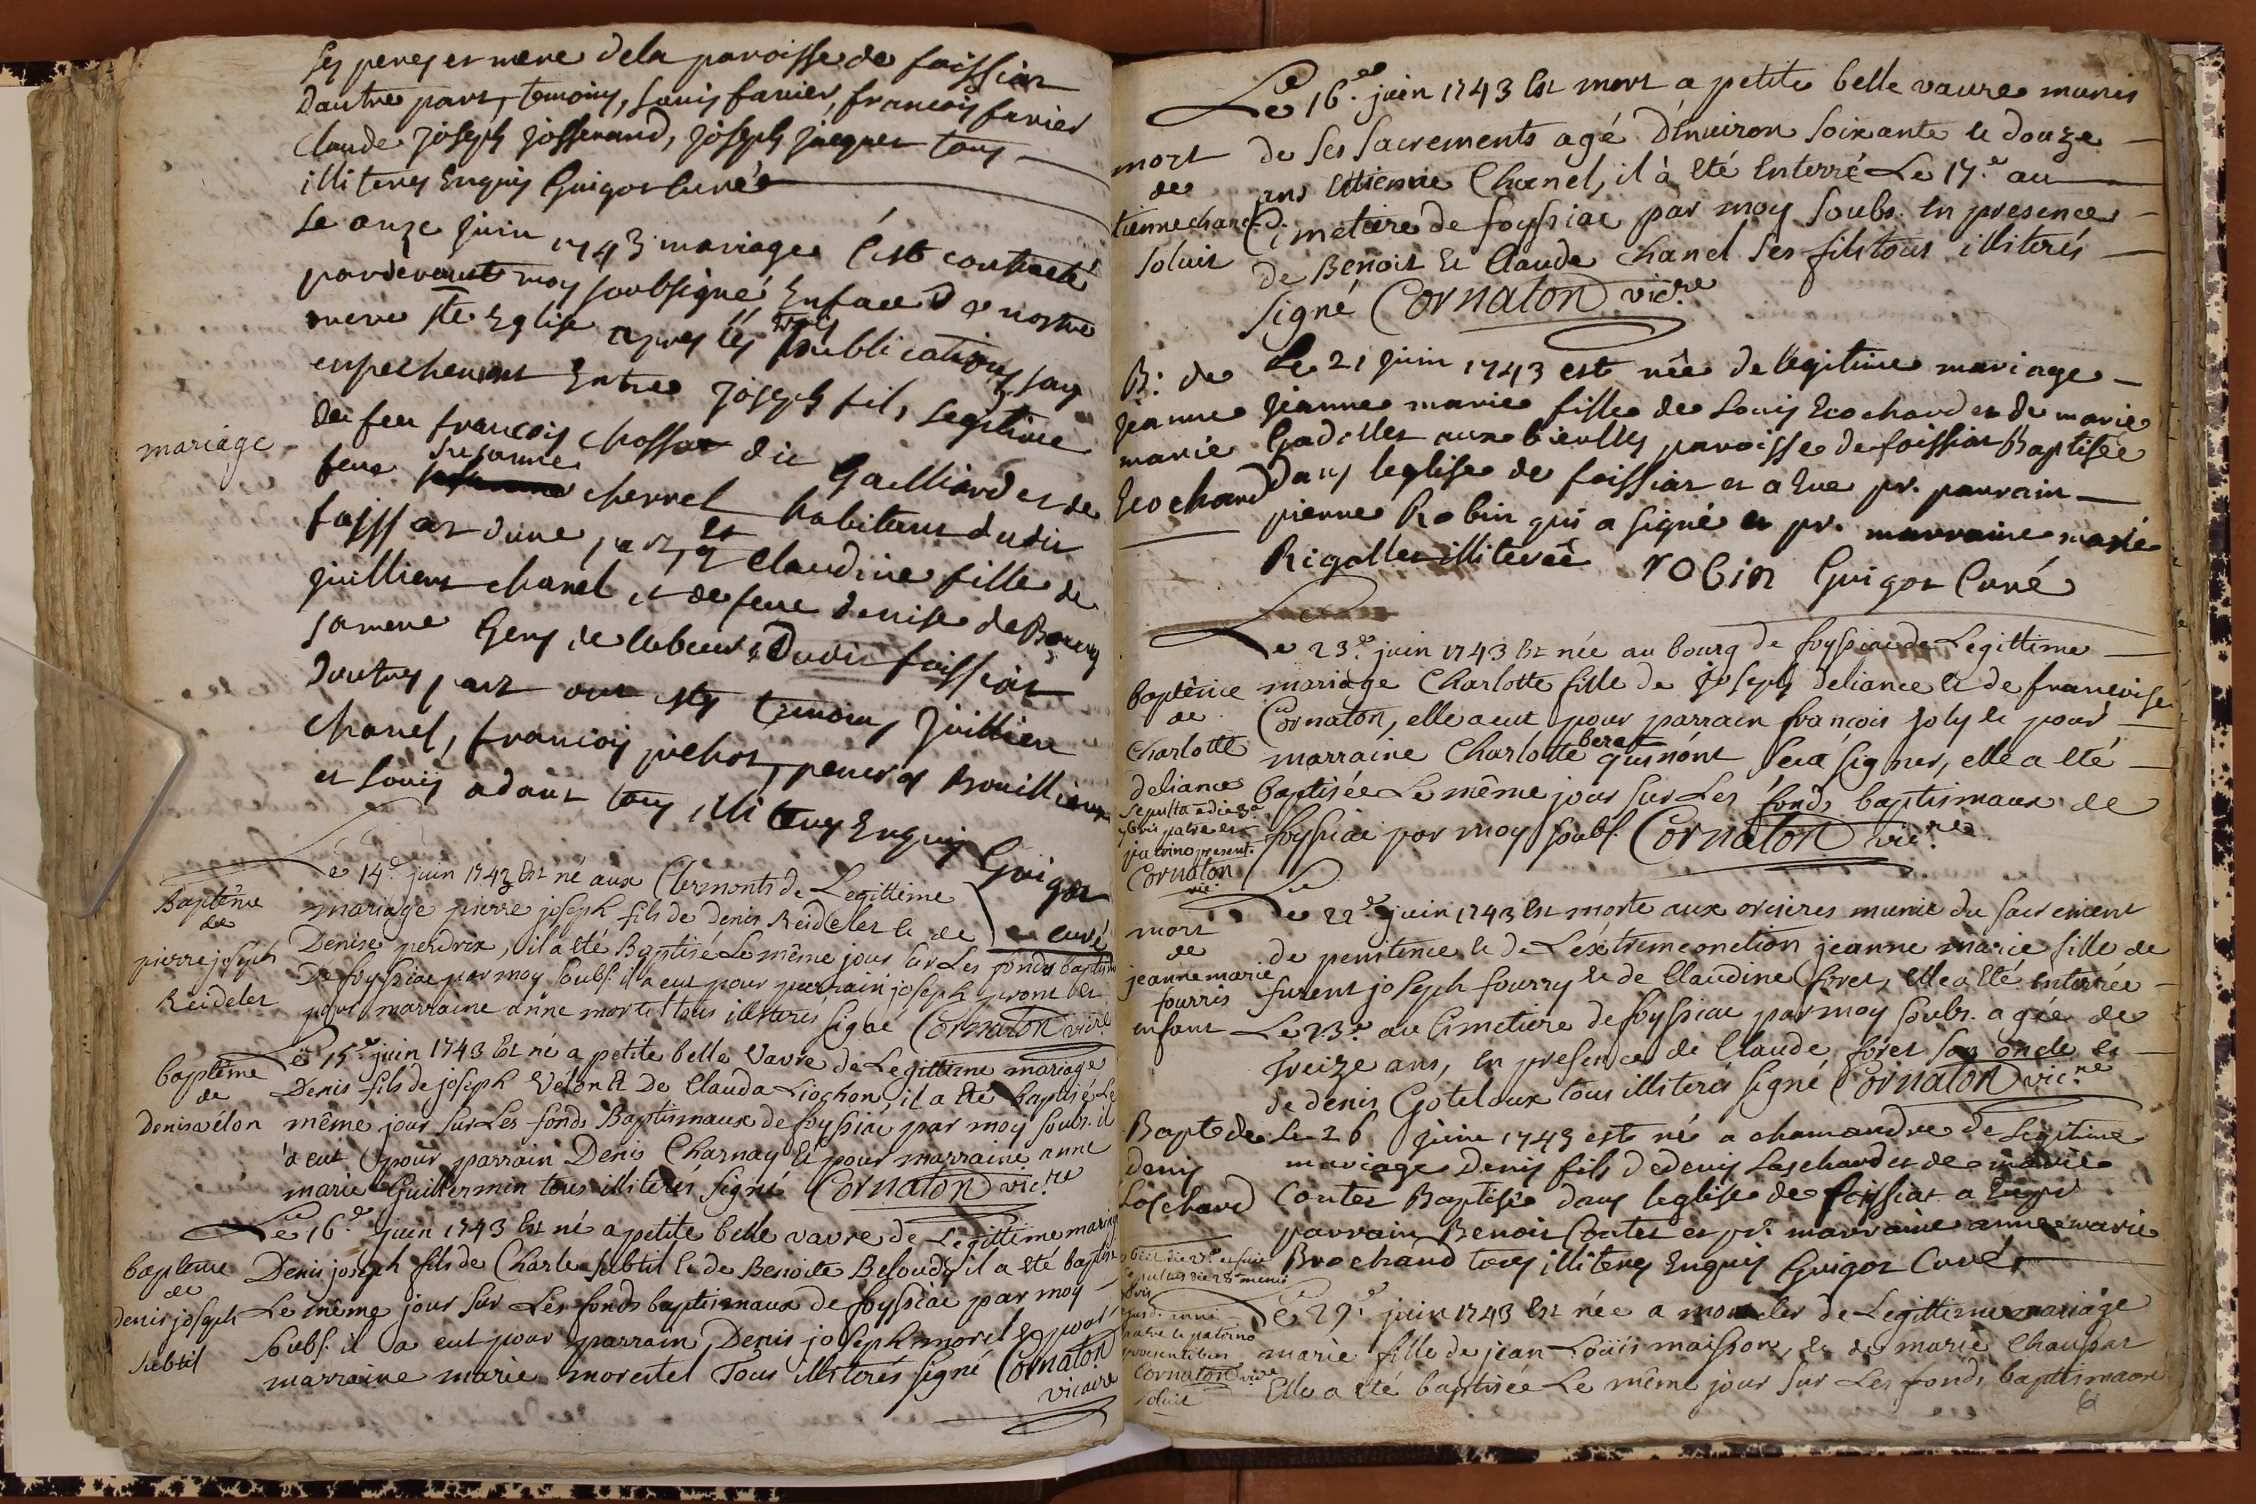 ses peres et mere dela paroisse de foissiat
dautre part, temoins, Louis favier, francois favier
claude joseph josserand, joseph jacquet tous
illiteres Enquis Guigot Curé
Le onze juin 1743 mariage C'est contracté
pardevant moy soubsigné, En face De nostre
mere ste Eglise apres les trois publications sans
enpechement Entre joseph fils Legitime
de feu francois chossat dit Gailliard et de
mariage
feue susanne chernel habitant dudit
foissiat dune part, et Claudine fille de
juillient chanel et de feue denise de
sa mere Gens de labeur Dudit foissiat
Dautre part ont estes temoins juillien
chanel, francois pichot,
et Louis adant tous illiteres Enquis
Guigot
curé
Le 14e juin 1743 Est né aux Clermonts de Legittime
Baptême
de
pierre joseph
Reidelet
mariage pierre joseph fils de Denis Reidelet et de
Denise perdrix, il a Eté Baptisé Le même jour sur Les fonds baptism
De foyssiac par moy soubs. il a eut pour parrain joseph et
pour marraine anne mortel tous illiteres signé Cornaton vicre
Le 15e juin 1743 Est né a petite belle Vavre de Legittime mariage
baptême
de
Denis vélon
Denis fils de joseph Vélon et De Clauda Liochon, il a Eté baptisé Le
même jour sur Les fonds Baptismaux de foyssiac par moy soubs. il
a eut pour parrain Denis Charnay Et pour marraine anne
marie Guillermin tous illiterés signé Cornaton vicre
Le 16e juin 1743 Est né a petite belle vavre de Legittime mariage
baptême
de
denis joseph
subtil
Denis joseph fils de Charle subtil Et de Benoite Besoud, il a Eté baptisé
Le même jour sur Les fonds baptismaux de foyssiac par moy
soubs. il a eut pour parrain Denis joseph morel Et pour
marraine marie morestel Tous illiterés signé Cornaton
vicaire
Le 16e juin 1743 Est mort a petite belle vavre munis
mort
de
tienne chanel
soluit
de ses sacrements agé D'environ soixante et douze
ans Ettienne Chanel, il à Eté Enterré Le 17e au
Cimetiere de foyssiac par moy soubs. En presence
de Benoit Et Claude chanel ses fils tous illiterés
signé Cornaton vicre
B. de
jeanne
marie
Ecochard
Le 21 juin 1743 est née de legitime mariage
jeanne marie fille de Louis Ecochard et de marie
Gadillet aux bieulles paroisse de foissiat Baptisée
dans leglise de foissiat et a Eue pr. parrain
pierre Robin qui a signé et pr. marraine marie
Rigollet illiterée robin Guigot Curé
Le 23e juin 1743 Est née au bourg de foyssiac de Legittime
baptême
de
Charlotte
deliance
sepulta e die 3a
patre et
patrino present.
Cornaton
vic.
mariage Charlotte fille de joseph deliance Et de francoise
Cornaton, elle a eut pour parrain françois joly et pour
marraine Charlotte berat qui n'ont sceu signer, elle a Eté
baptisée Le même jour sur Les fonds baptismaux de
foyssiac par moy soubs. Cornaton vicre
Le 22e juin 1743 Est morte aux orcieres munie du sacrement
mort
de
jeanne marie
fourris
enfant
de penitence et de L'éxtreme onction jeanne marie fille de
furent joseph fourry Et de Claudine foret, Elle a Eté enterrée
Le 23e au Cimetiere de foyssiac par moy soubs. agée de
treize ans, En presence de Claude foret son oncle et
de denis Goteloux tous illiterés signé Cornaton vicre
Bapt de
denis
Loschard
Le 26 juin 1743 est né a chamandre de Legitime
mariage Denis fils de denis Loschard et de marie
Contet Baptisé dans leglise de foissiat a Eu pr
parrain Benoit Contet et pr. marraine anne marie
Brochand tous illiteres Enquis Guigot Curé
patrino
presentibus
Cornaton vicre
soluit
Le 27e juin 1743 Est née a de Legittime mariage
marie fille de jean Loüis maisson, Et de marie Chaussat
Elle a Eté baptisée Le même jour sur Les fonds baptismaux